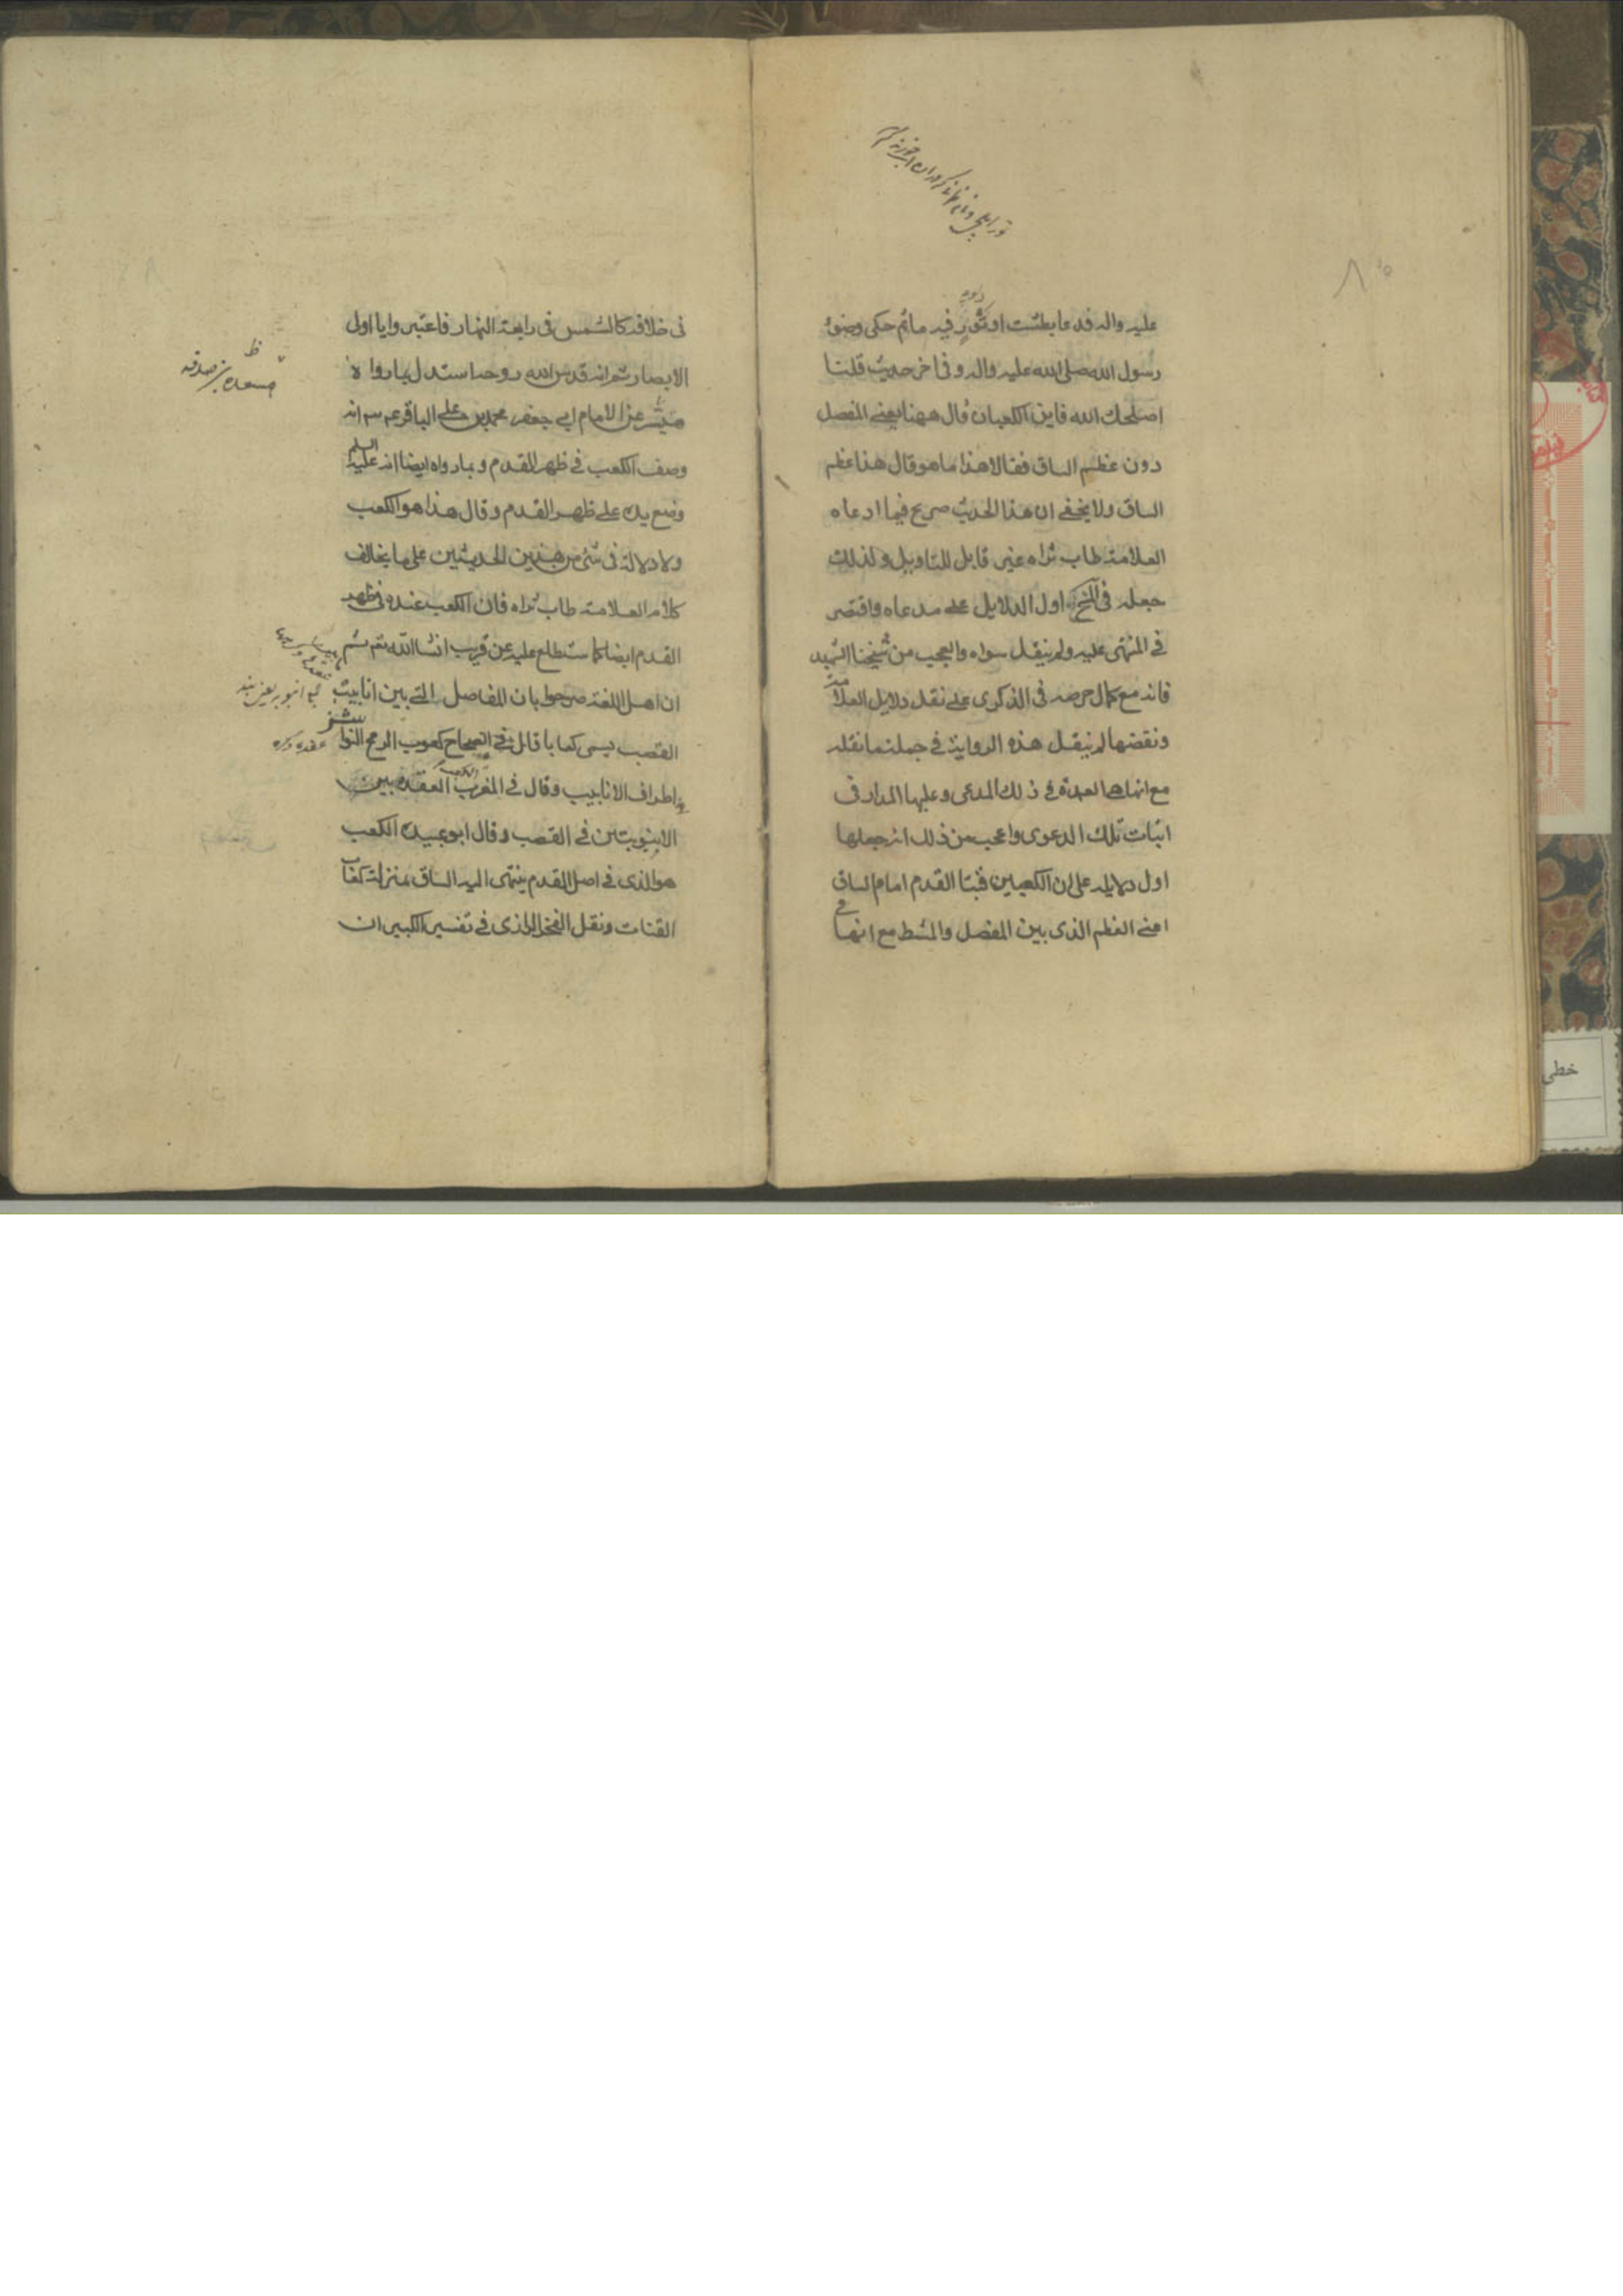 عليه واله فدعا بطشت او تور فيه ماء ثم حكى وضوء
رسول الله صلى الله عليه واله وفى اخر حديث قلنا
اصلحك الله فاين الكعبان قال ههنا يعنى المفصل
دون عظم الساق فقالا هذا ما هو قال هذا عظم
الساق ولا يخفى ان هذا الحديث صريح فيما ادعاه
العلامة طاب ثراه غير قابل للتاويل ولذلك
جعله فى اول الدلايل على مدعاه واقتصر
فى المنتهى عليه ولم ينقل سواه والعجب من شيخنا الشهيد
فانه مع كمال حرصه فى الذكرى على نقل دلايل العلامة
ونقضها لم ينقل هذه الرواية فى جملة ما نقله
مع انها هى العمدة فى ذلك المدعى وعليها المدار فى
اثبات تلك الدعوى واعجب من ذلك انه جعلها
اول دلايله على ان الكعبين قبتا القدم امام الساق
اعنى العظم الذى بين المفصل والمشط مع انها
فى
فى خلافه كالشمس فى رابعة النهار فاعتبروا يا اولى
الابصار ثم انه قدس الله روحه استدل بما رواه
ميسر عن الامام ابى جعفر محمد بن على الباقر عم انه
وصف الكعب فى ظهر القدم وبما رواه ايضا انه عليه السلم
وضع يده على ظهر القدم وقال هذا هو الكعب
ولا دلالة فى شئ من هذين الحديثين على ما يخالف
كلام العلامة طاب ثراه فان الكعب عنده فى ظهر
القدم ايضا كما ستطلع عليه عن قريب انشا الله تعم ثم
ان اهل اللغة صرحوا بان المفاصل التى بين انابيب
القصب يسمى كعابا قال فى الصحاح كعوب الرمح النواشز
اطراف الانابيب وقال فى المغرب الكعب العقدة بين
الانبوبتين فى القصب وقال ابو عبيدة الكعب
هو الذى فى اصل القدم ينتهى اليه الساق بمنزلة كعاب
القنات ونقل الفخر الرازى فى تفسير الكبير ان
ظ
مسعدة بن صدقه
خطى